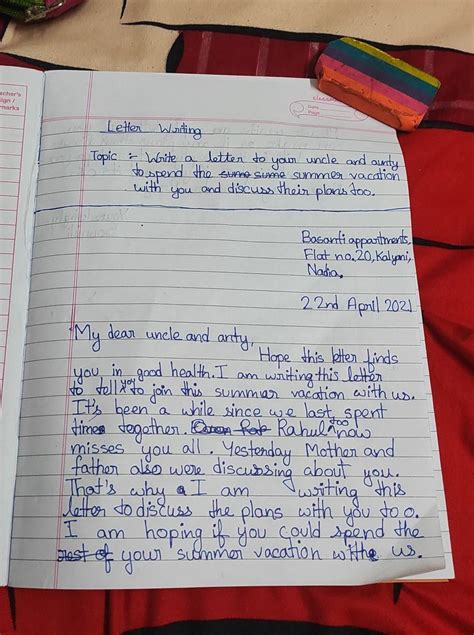 acher's
ign /
marks
classmate
Date
Page
Letter Writing
Topic :- Write a letter to your uncle and aunty
to spend the sume sume summer vacation
with you and discuss their plans too.
Basanti appartments,
Flat no. 20, Kalyani,
Nadia.
22nd April 2021
My dear uncle and anty,
Hope this letter finds
you in good health. I am writing this letter
to tell you to join this summer vacation with us.
It's been a while since we last spent
time together. Rahul too now
misses you all. Yesterday Mother and
father also were discussing about you.
That's why I am writing this
letter to discuss the plans with you too.
I am hoping if you could spend the
rest of your summer vacation with us.